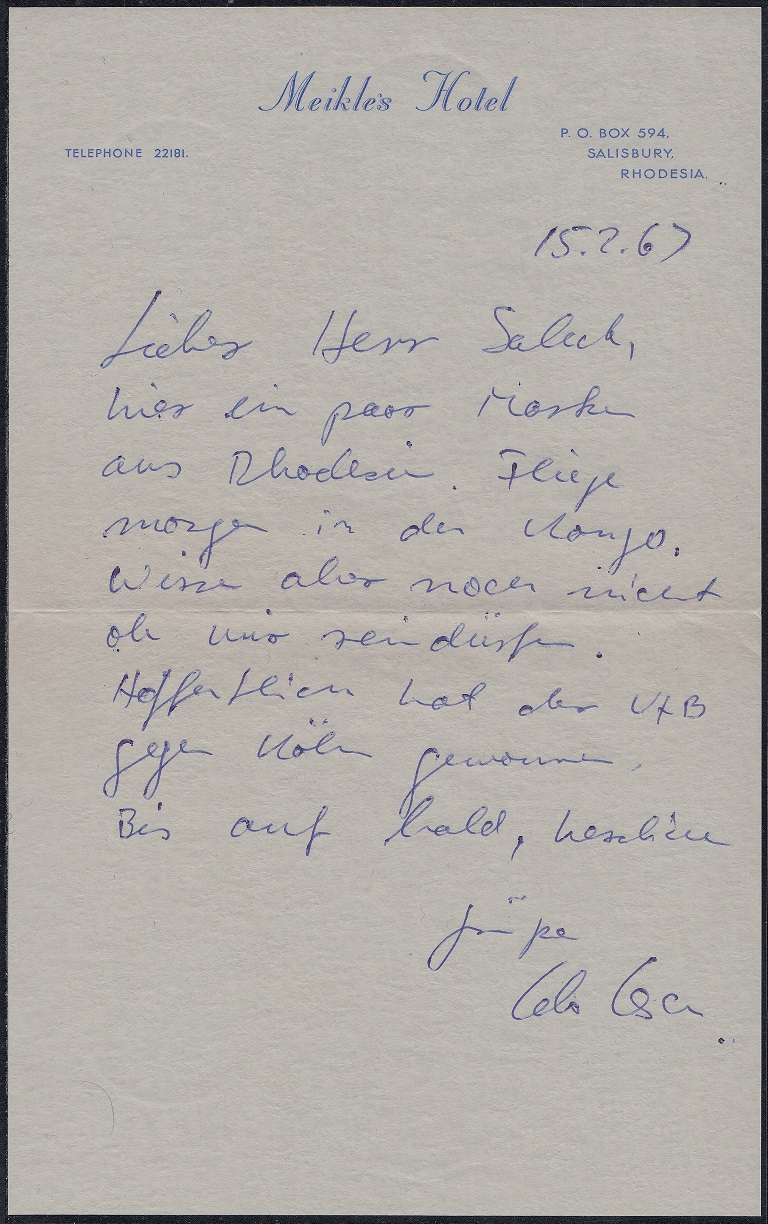 Meikle's Hotel
TELEPHONE 22181.
P. O. BOX 594,
SALISBURY,
RHODESIA.
15.2.67
Lieber Herr
hier ein paar Marken
aus Rhodesien. Fliege
morgen in den Kongo.
Wissen aber noch nicht
ob wir rein dürfen.
Hoffentlich hat der VfB
gegen Köln gewonnen.
Bis auf bald, herzliche
Grüße